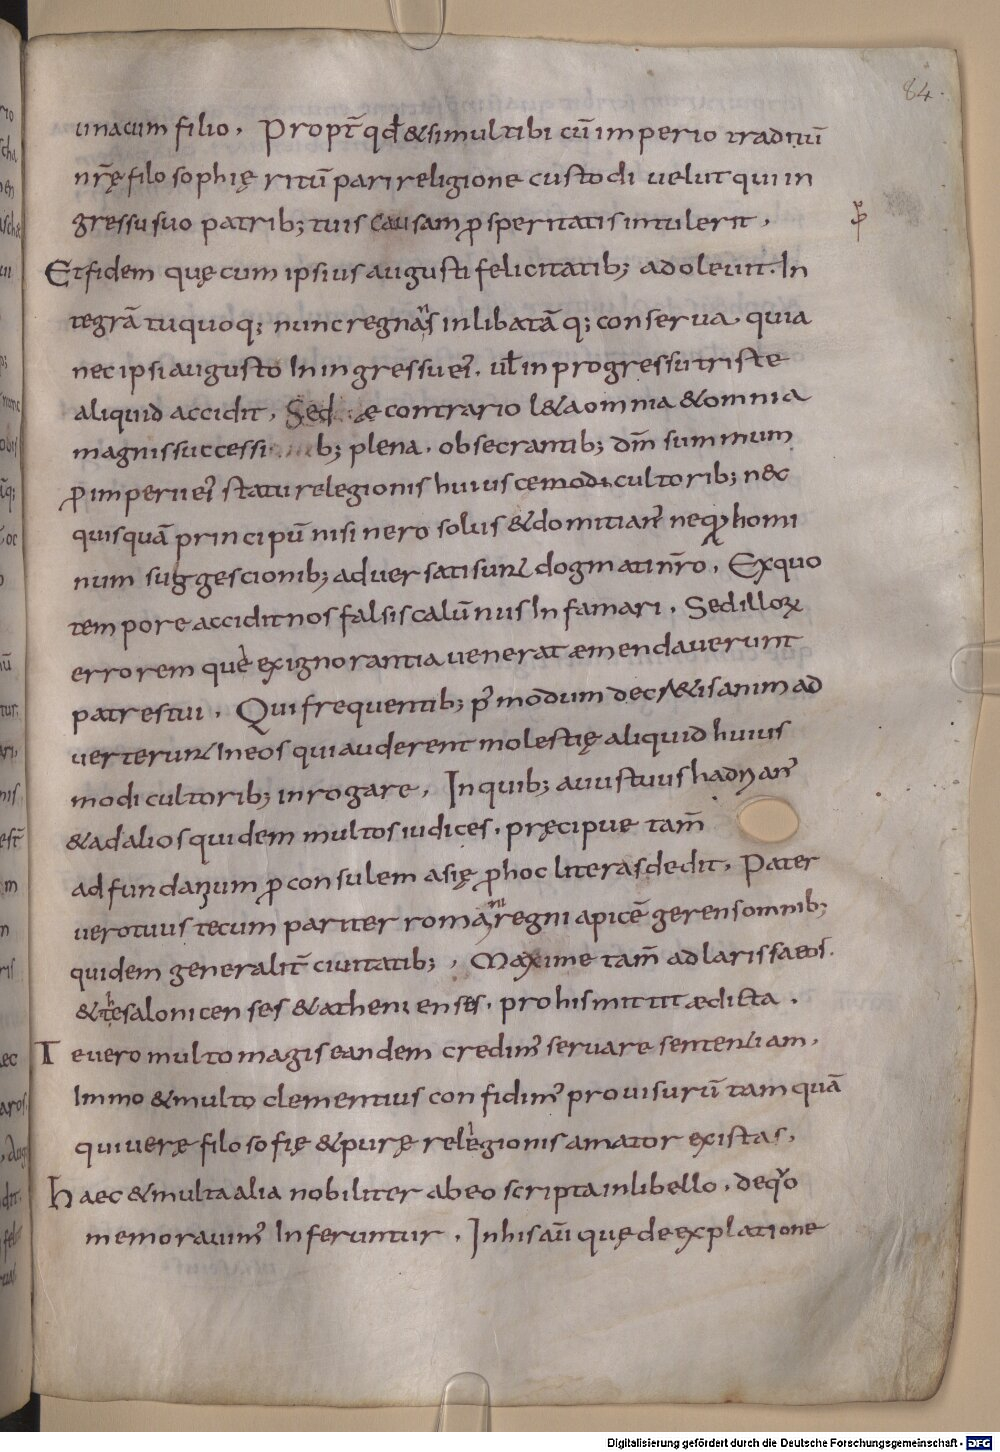 84.
una cum filio. Propt̄ qđ & simul tibi cū imperio traditū
nr̄ę filosophię ritū pari religione custodi velut qui in
gressu suo patrib; tuis causam ꝓsperitatis intulerit.
ꝓ
Et fidem quę cum ipsius augusti felicitatib; adolevit. In
tegrā tu quoq; nunc regnans inlibatā q; conserva. quia
nec ipsi augusto In ingressu ei'. ul̄ in progressu triste
aliquid accidit. Sed æ contrario l&a omnia & omnia
magnis successi b; plena. obsecrantib; dn̄m summum
ꝓ imperii ei' statu relegionis huiuscemodi cultorib; nec
quisquā principū nisi nero solus & domitian' neqꝫ homi
num suggescionib; adversati sunt dogmati nr̄o. Ex quo
tempore accidit nos falsis calūniis Infamari. Sed illoꝝ
errorem què ex ignorantia venerat æmendaverunt
patres tui. Qui frequentib; p' modum decr&is animad
verterunt In eos qui auderent molestię aliquid huius
modi cultorib; inrogare. In quib; avus tuus hadrian'
& ad alios quidem multos iudices. pręcipue tam̄
ad fundanum ꝓconsulem asię ꝓ hoc literas dedit. Pater
vero tuus tecum pariter romani regni apicē gerens omnib;
quidem generalit̄ civitatib;, Maxime tam̄ ad larissaeos.
& thesalonicenses & athenienses. pro his mittit ædicta.
Te vero multo magis eandem credim' servare sententiam.
Immo & multo clementius confidim' provisurū tam quā
qui verę filosofię & purę relegionis amator existas.
Haec & multa alia nobiliter ab eo scripta in libello. de quo
memoravim' Inferuntur. In his aū quę de explatione
Digitalisierung gefördert durch die Deutsche Forschungsgemeinschaft - DFG